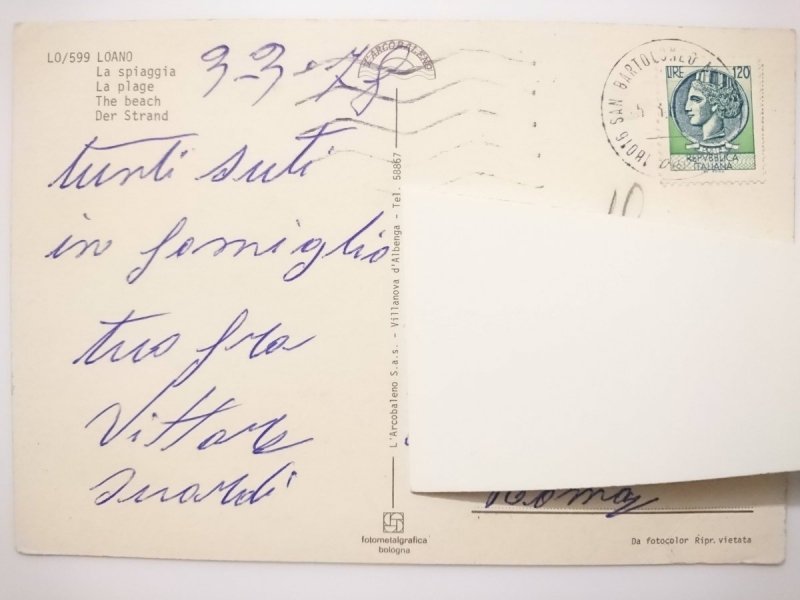 LO/599 LOANO
La spiaggia
La plage
The beach
Der Strand
3-3-78
tunti suti
in famiglia
tuo fra
Vittore
Suardi
L'ARCOBALENO
L'Arcobaleno S.a.s. - Villanova d'Albenga - Tel. 58867
18016 SAN BARTOLOMEO
LIRE 120
REPVBBLICA
ITALIANA
Roma
fotometalgrafica
bologna
Da fotocolor Ripr. vietata